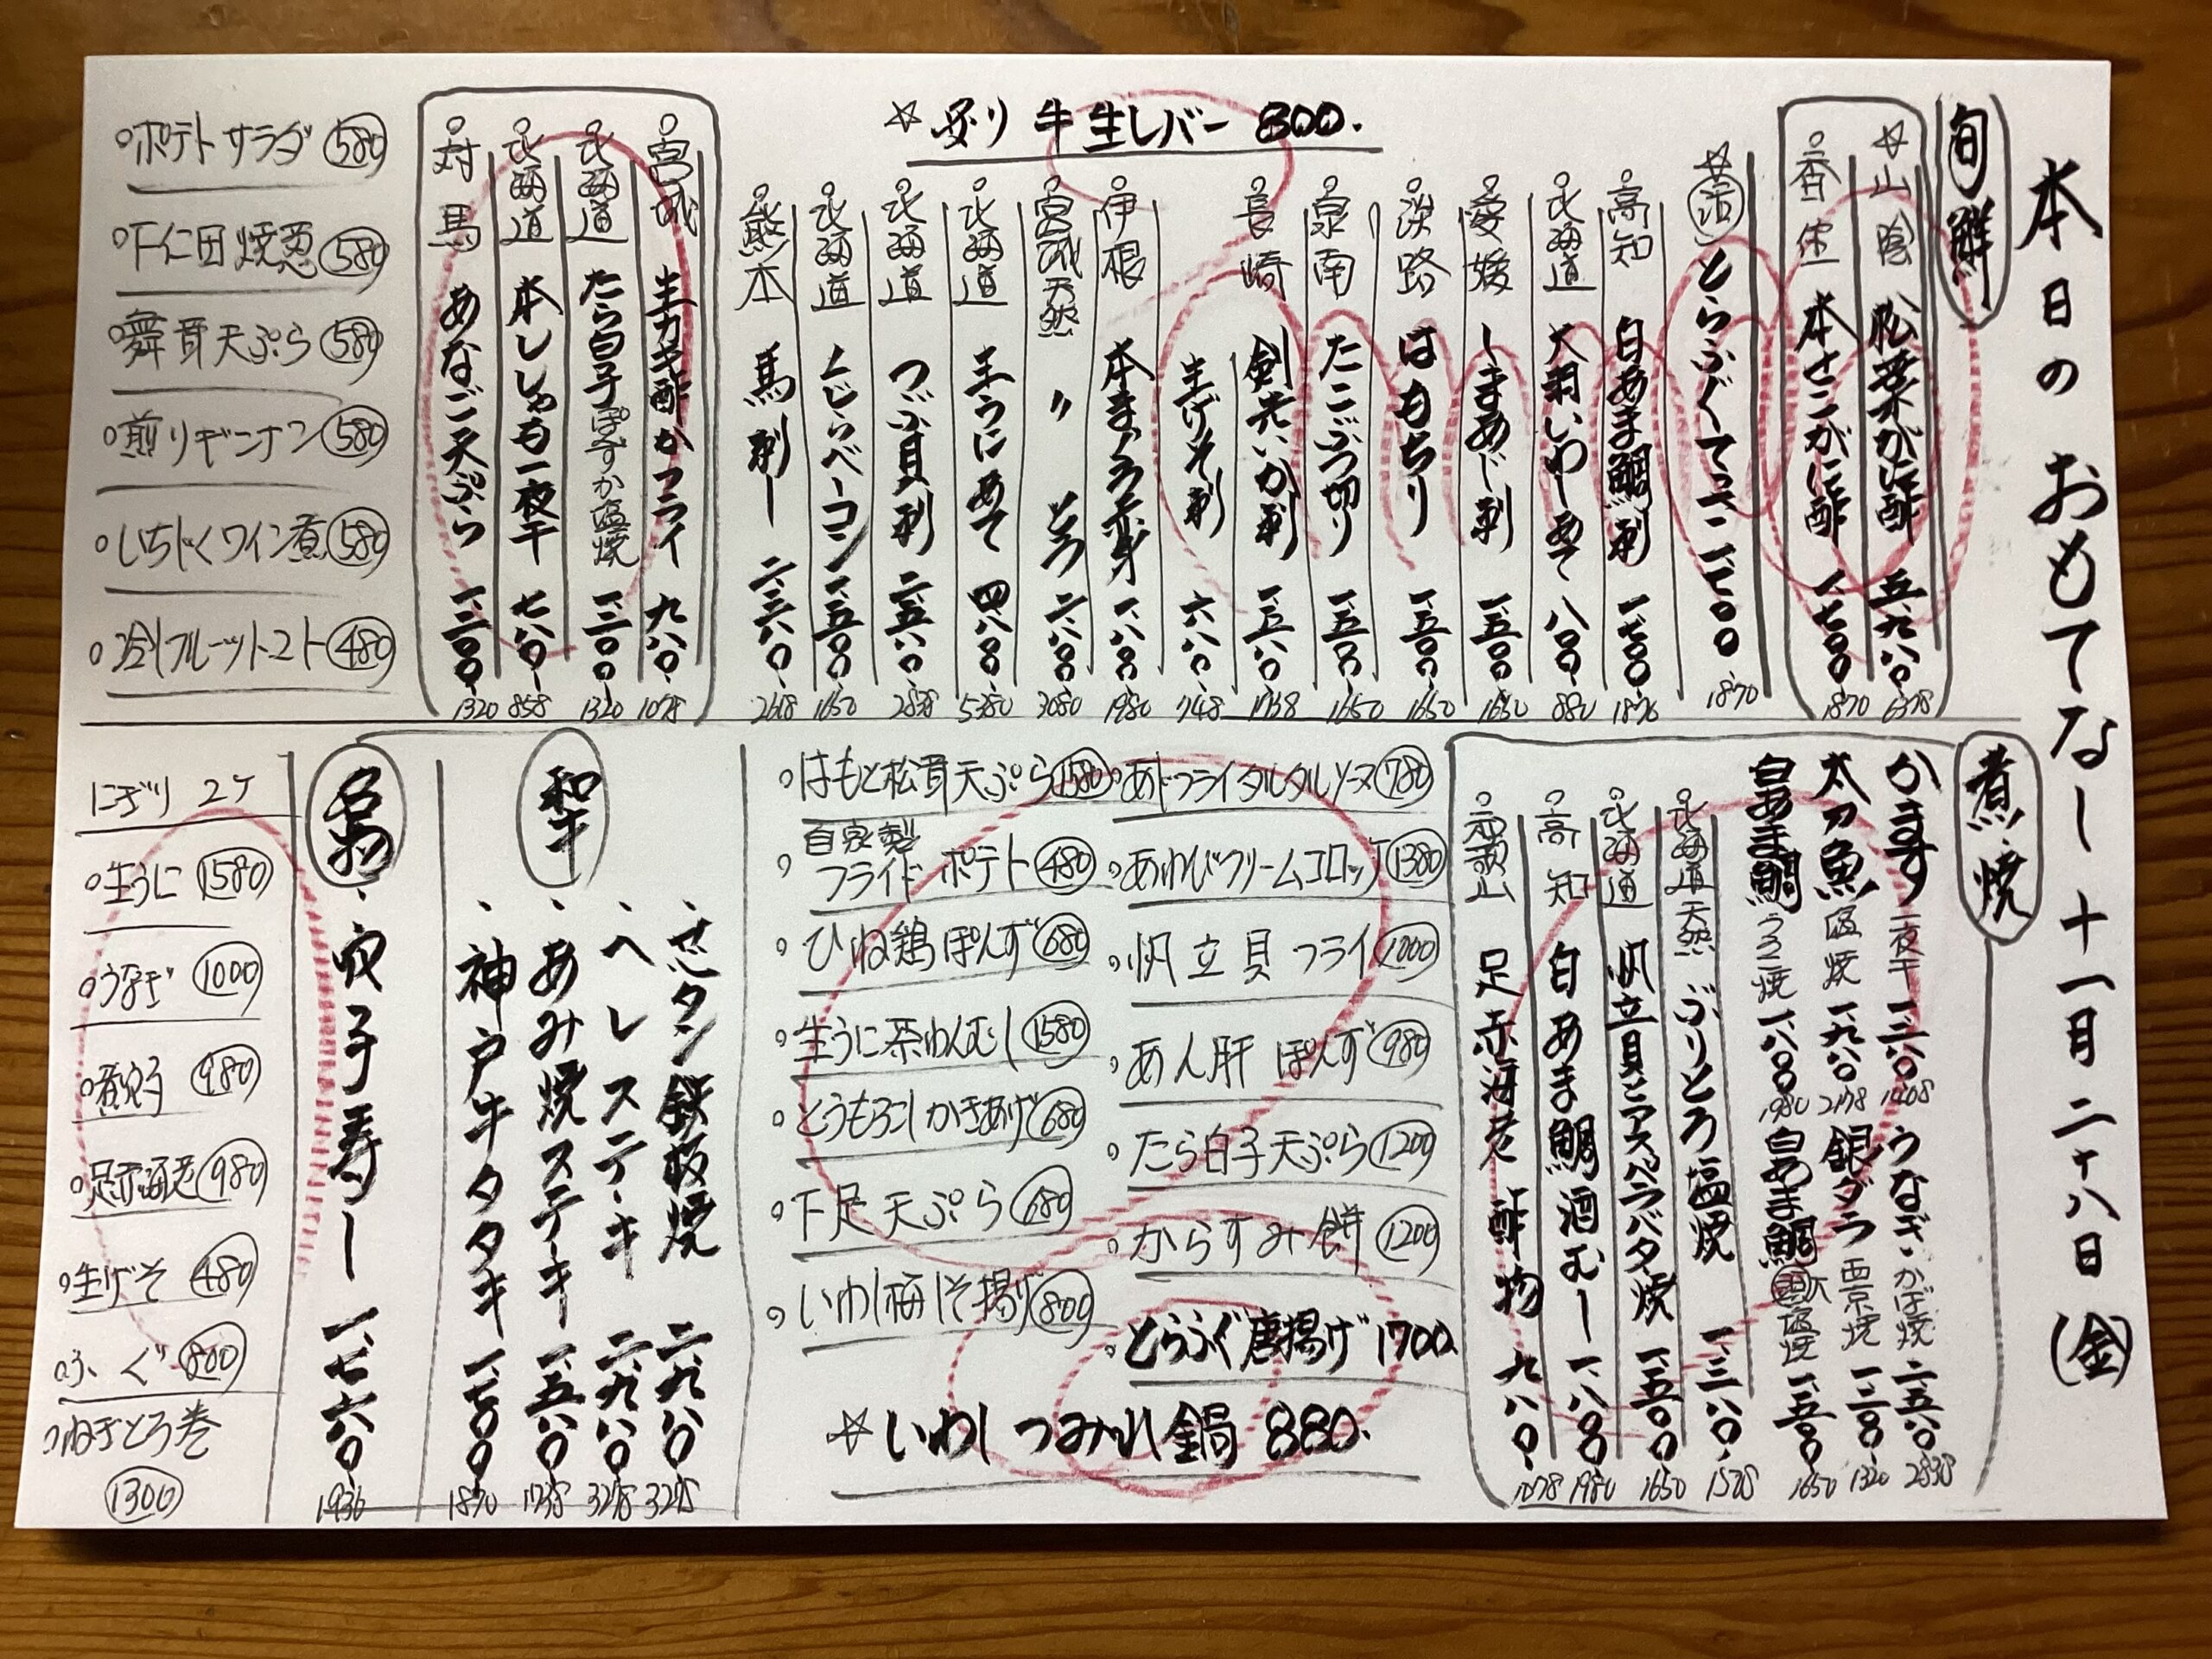 本日のおもてなし 十一月二十八日(金)
旬鮮
☆山陰 松葉がに酢 五.九八〇 6578
香住 本せこがに酢 一.七〇〇 1870
☆活 とらふぐてっさ 一.七〇〇 1870
高知 白あま鯛刺 一.七〇〇 1870
北海道 大羽いわしあて 八〇〇 880
愛媛 しまあじ刺 一.五〇〇 1650
淡路 はもちり 一.五〇〇 1650
泉南 たこぶつ切り 一.五〇〇 1650
長崎 剣先いか刺 一.五八〇 1738
生げそ刺 六八〇 748
伊根 本まぐろ赤身 一.八〇〇 1980
宮城天然 〃 とろ 二.八〇〇 3080
北海道 生うにあて 四.八〇〇 5280
北海道 つぶ貝刺 二.五八〇 2838
北海道 くじらベーコン 一.五〇〇 1650
熊本 馬刺し 二.三八〇 2618
☆炙り 牛生レバー 800.
宮城 生カキ酢 かフライ 九八〇 1078
北海道 たら白子ぽんずか塩焼 一.二〇〇 1320
北海道 本ししゃも一夜干 七八〇 858
対馬 あなご天ぷら 一.二〇〇 1320
ポテトサラダ 580
下仁田焼葱 580
舞茸天ぷら 580
煎りギンナン 580
いちじくワイン煮 580
冷しフルーツトマト 480
煮・焼
かます一夜干 一.二八〇 1408
うなぎ・かば焼 二.五八〇 2838
太刀魚塩焼 一.九八〇 2178
銀ダラ西京焼 一.二〇〇 1320
白あま鯛うろこ焼 一.八〇〇 1980
白あま鯛塩焼 一.五〇〇 1650
北海道天然 ぶりとろ塩焼 一.三八〇 1518
北海道 帆立貝とアスパラバタ焼 一.五〇〇 1650
高知 白あま鯛酒むし 一.八〇〇 1980
和歌山 足赤海老酢物 九八〇 1078
あじフライタルタルソース 780
あわびクリームコロッケ 1380
帆立貝フライ 1000
あん肝ぽんず 980
たら白子天ぷら 1200
からすみ餅 1200
とらふぐ唐揚げ 1700.
はもと松茸天ぷら 1580
自家製フライドポテト 480
ひね鶏ぽんず 680
生うに茶わんむし 1580
とうもろこしかきあげ 680
下足天ぷら 680
いわし梅しそ揚げ 800
☆いわしつみれ鍋 880.
和牛
、せセリタン鉄板焼 二.九八〇 3278
、ヘレステーキ 二.九八〇 3278
、あみ焼ステーキ 一.五八〇 1738
、神戸牛タタキ 一.七〇〇 1870
名物
、穴子寿し 一.七六〇 1936
にぎり 2ケ
生うに 1580
うなぎ 1000
煮穴子 980
足赤海老 980
生げそ 480
ふぐ 800
ねぎとろ巻
1300